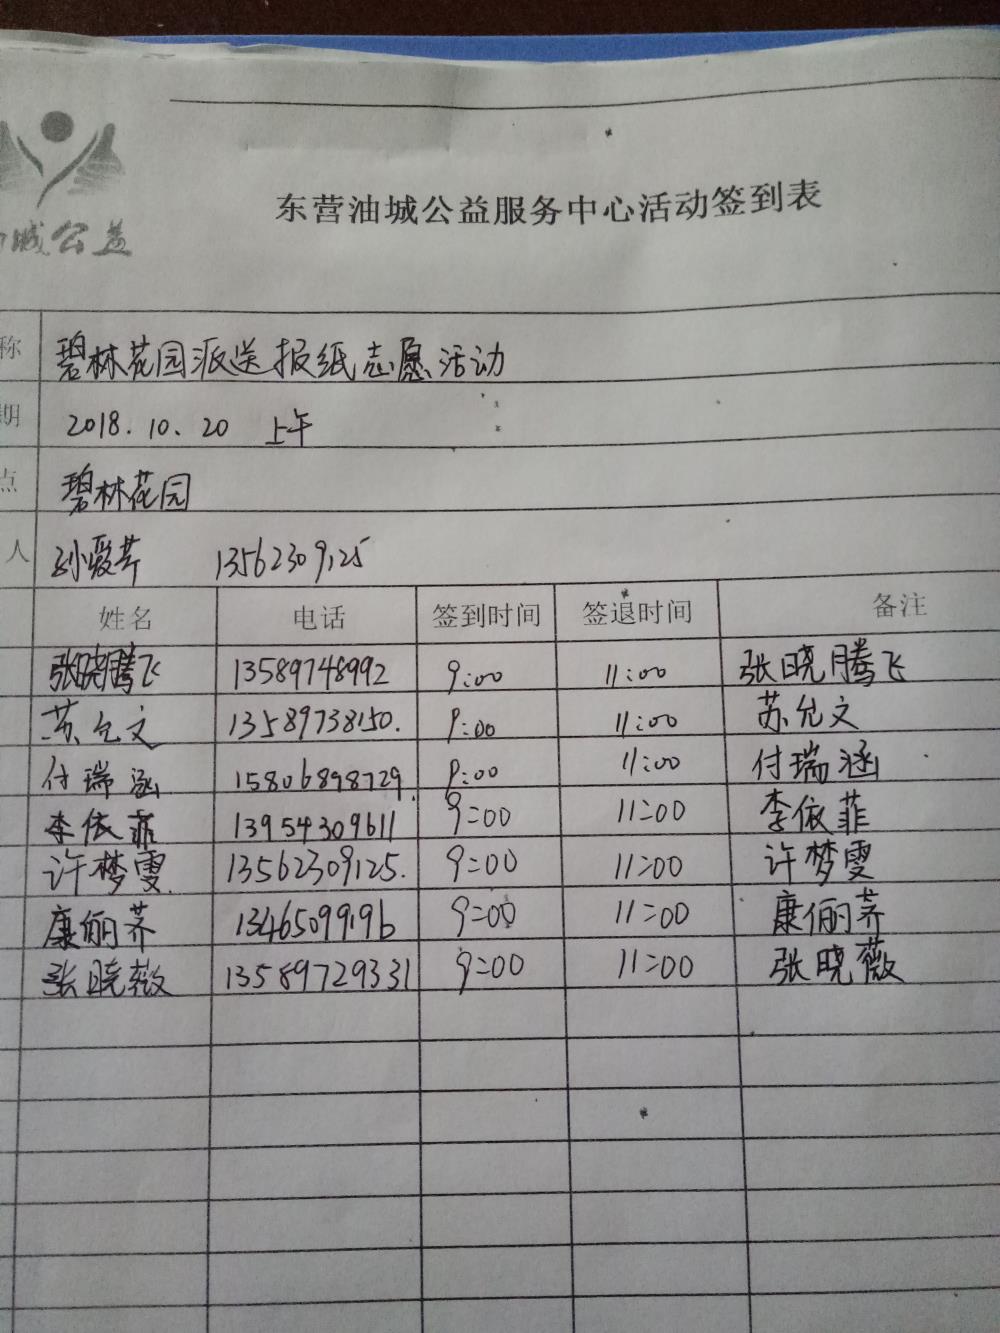 城公益
东营油城公益服务中心活动签到表
称 碧林花园派送报纸志愿活动
期 2018.10.20 上午
点 碧林花园
人 孙爱芹 13562309125
姓名 电话 签到时间 签退时间 备注
张晓腾飞 13589748992 9:00 11:00 张晓腾飞
苏允文 13589738150. 9:00 11:00 苏允文
付瑞涵 15806898729. 9:00 11:00 付瑞涵
李依菲 13954309611 9:00 11:00 李依菲
许梦雯 13562309125. 9:00 11:00 许梦雯
康俪荞 13465099196 9:00 11:00 康俪荞
张晓薇 13589729331 9:00 11:00 张晓薇